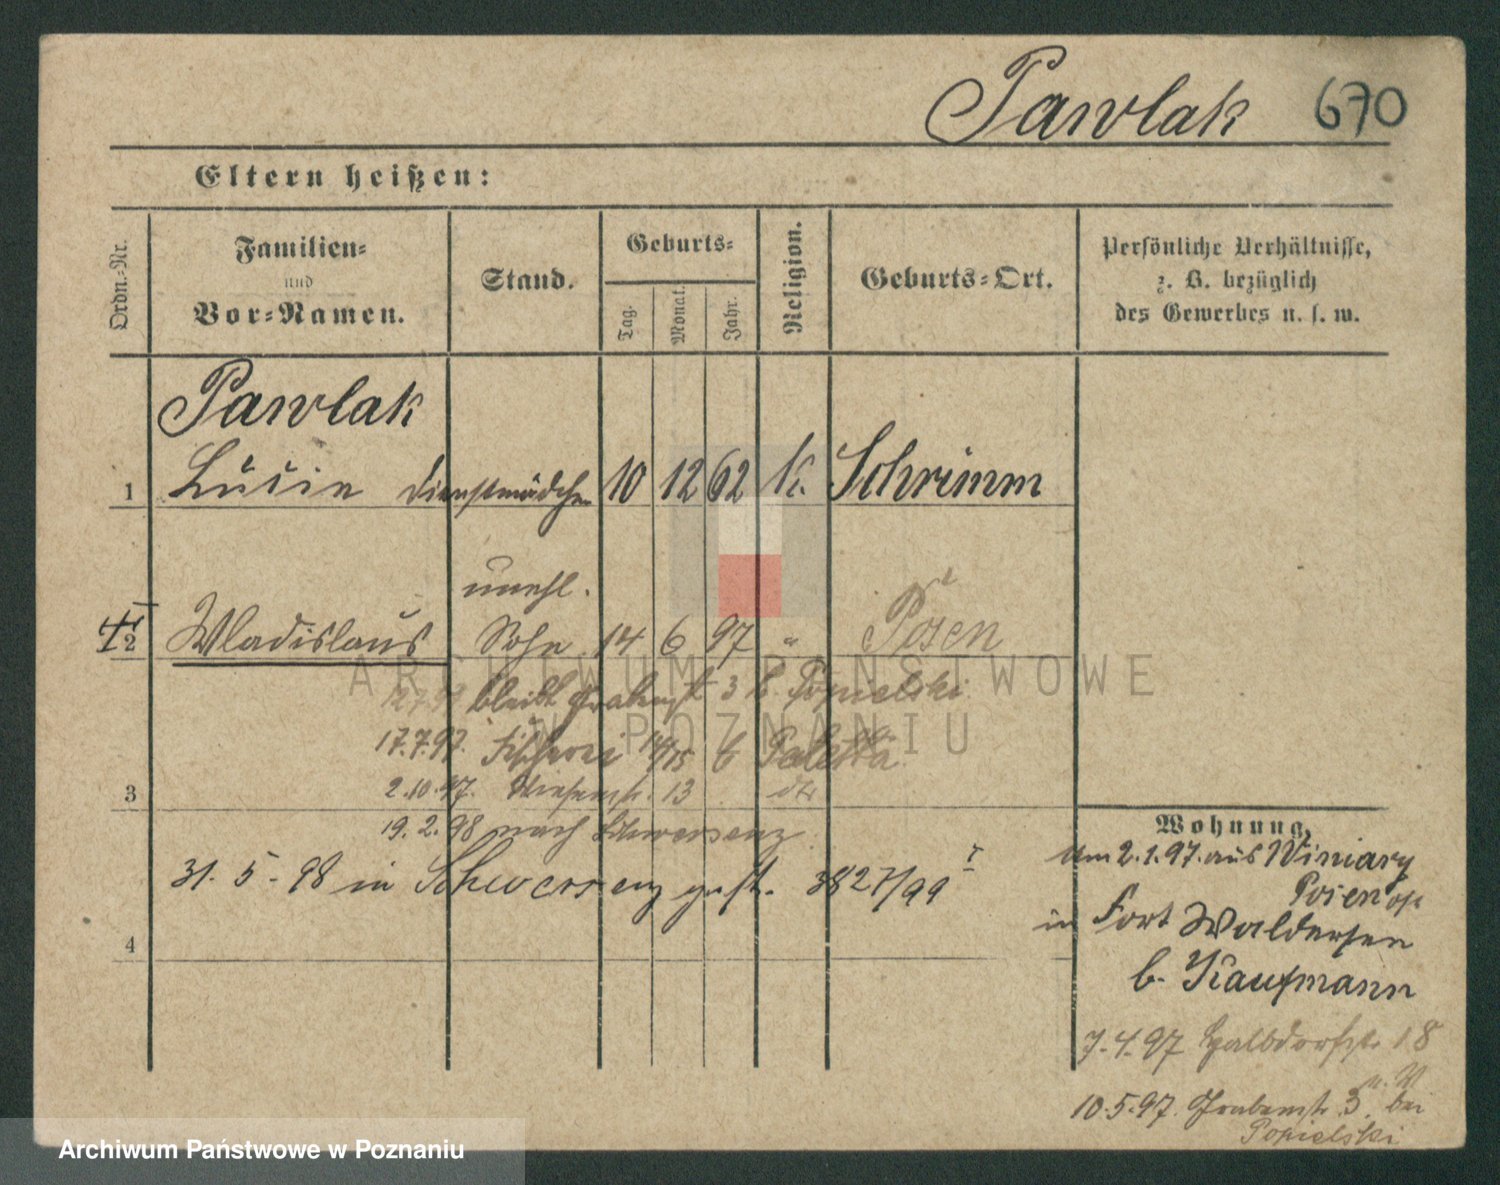 Pawlak 670
Eltern heißen:
Ordn.-Nr.
Familien-
und
Vor-Namen.
Stand.
Geburts-
Tag.
Monat.
Jahr.
Religion.
Geburts-Ort.
Persönliche Verhältnisse,
z. B. bezüglich
des Gewerbes u. s. w.
Pawlak
1 Lucie Dienstmädchen 10 12 62 K. Schrimm
unehl.
2 Wladislaus Sohn 14 6 97 " Posen
bleibt Grabenstr 3 b. Popielski
17.7.97. Fischerei 14/15 b Paletta
3
2.10.97. Wiesenstr. 13 dto
19.2.98 nach Schwersenz
31.5.98 in Schwersenz gest. 3827/99 I
4
Wohnung.
Am 2.1.97. aus Winiary
Posen
in Fort Waldersee
b. Kaufmann
7.4.97 Halbdorfstr 18
10.5.97. Grabenstr. 3. bei
Popielski
ARCHIWUM PAŃSTWOWE
W POZNANIU
Archiwum Państwowe w Poznaniu